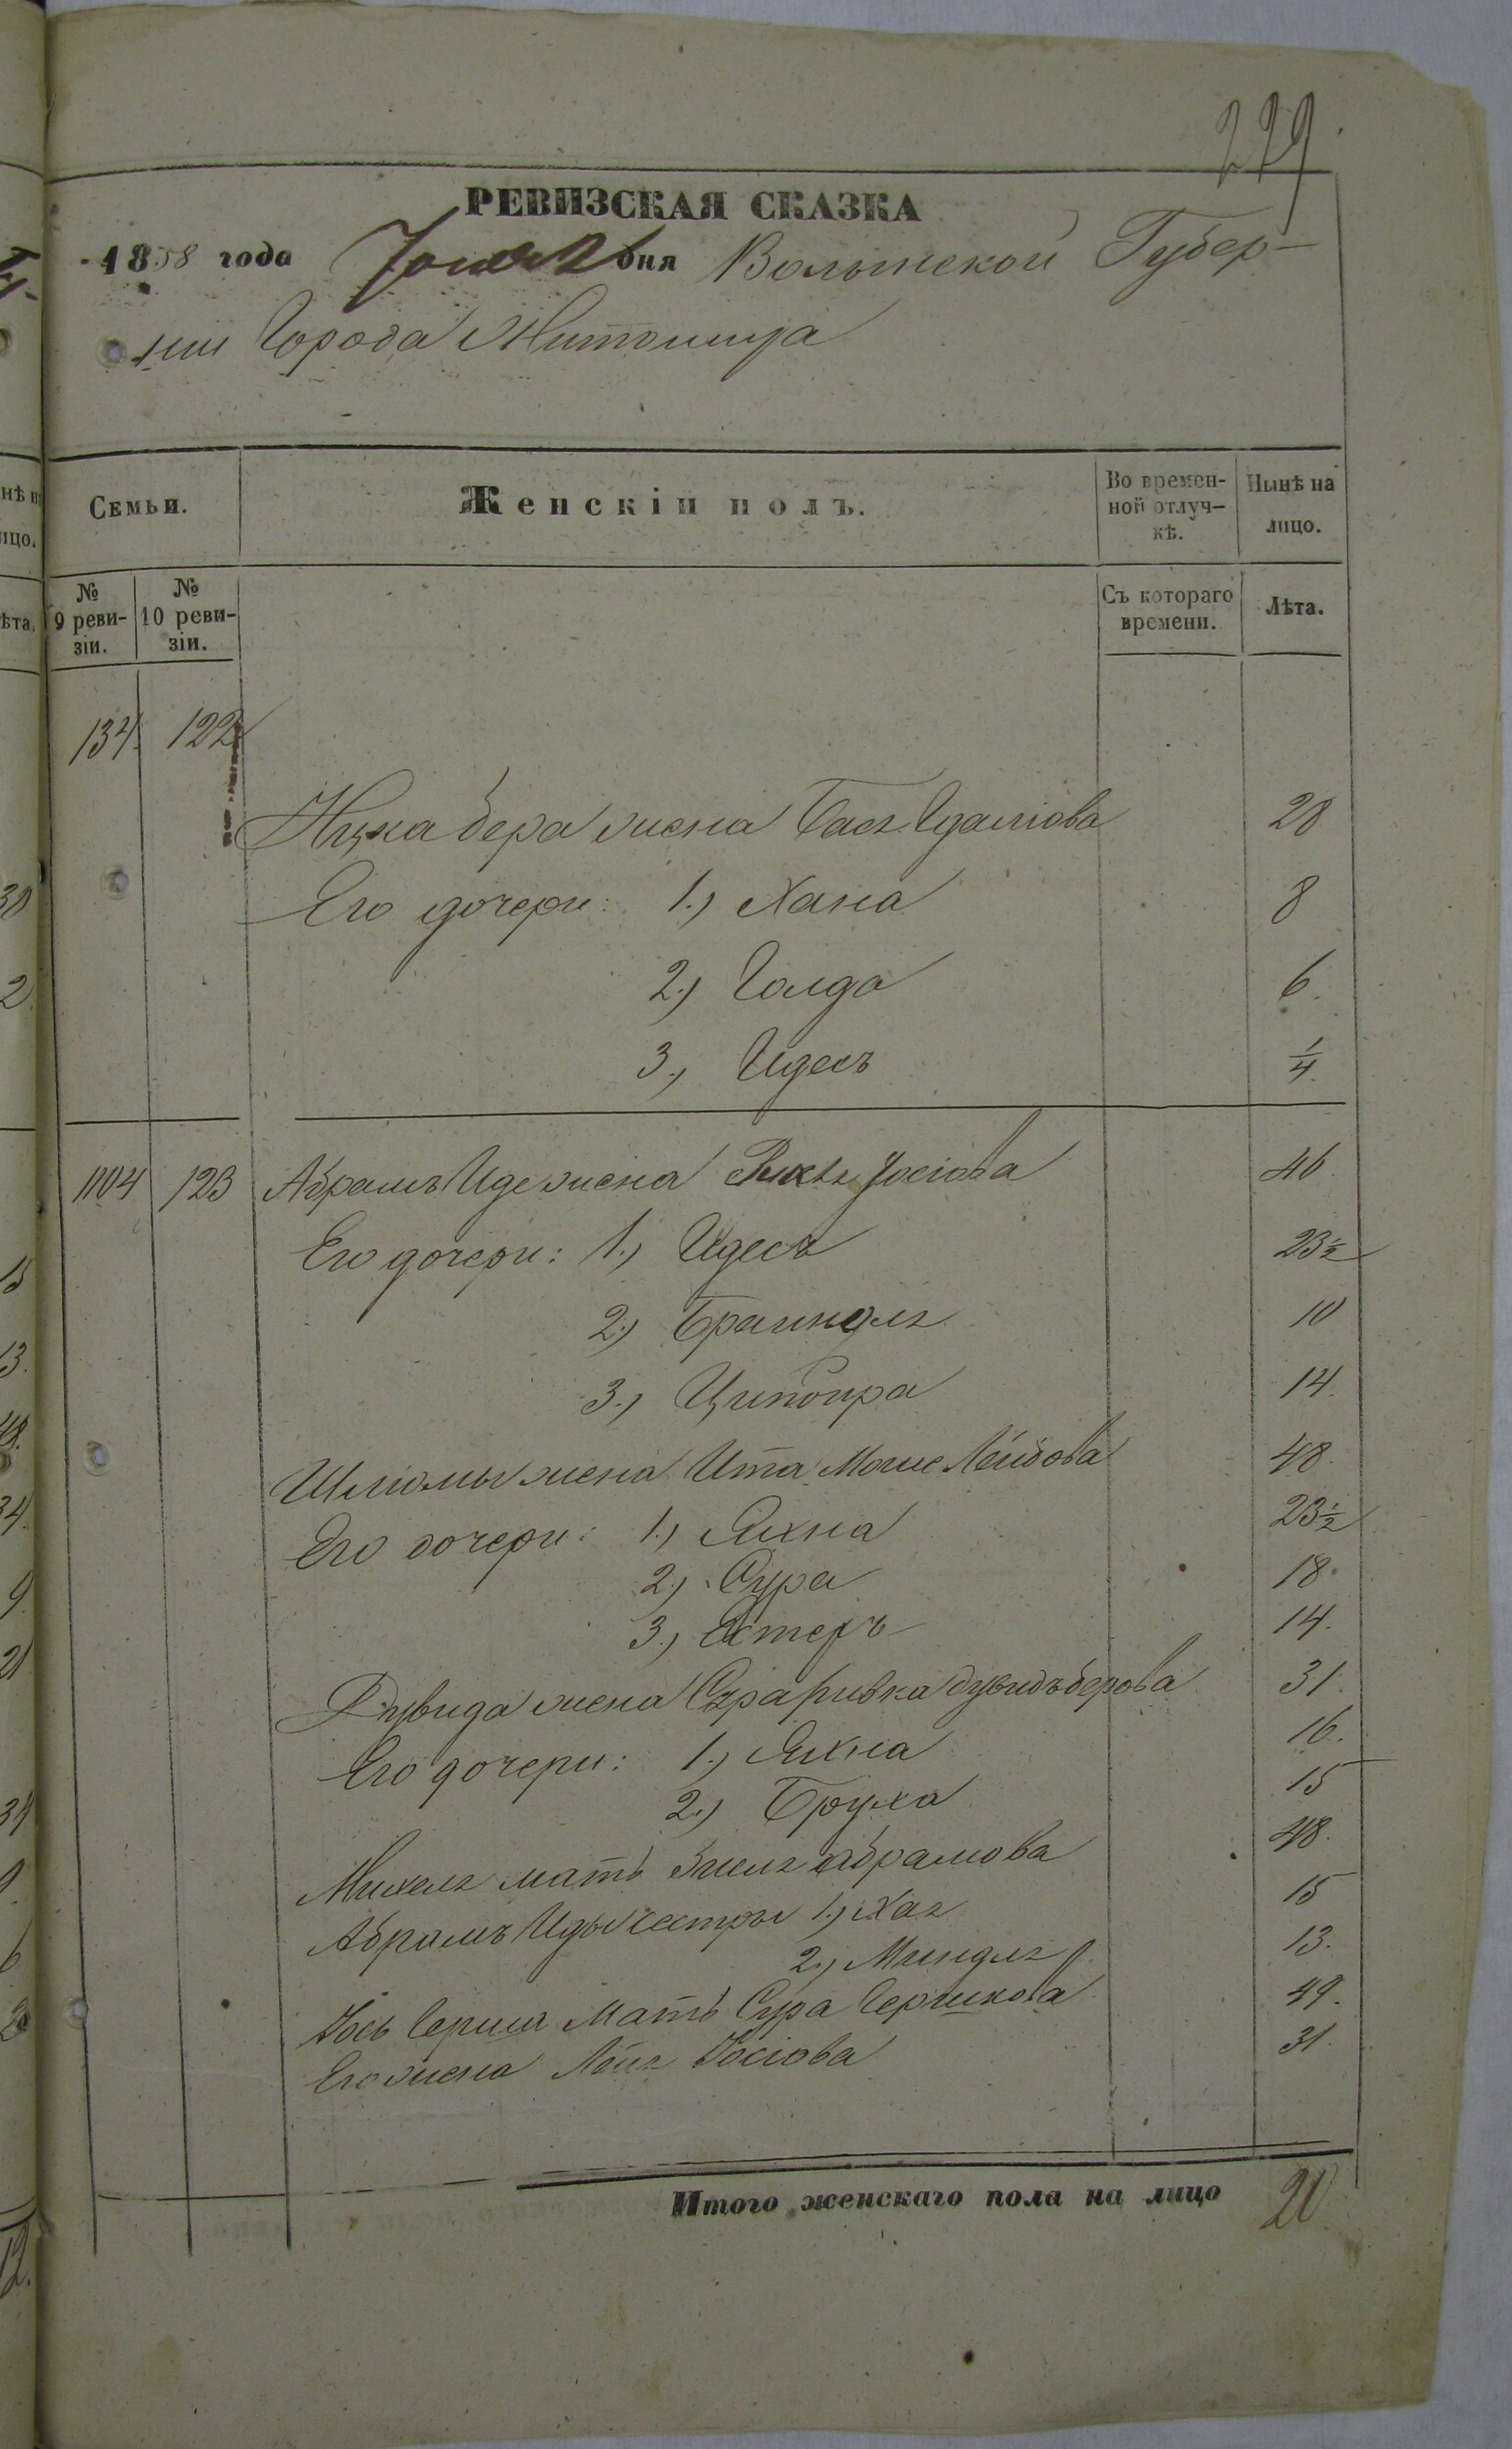 229.
РЕВИЗСКАЯ СКАЗКА
1858 года дня Волынской Губер-
ніи Города Житомира
Семьи. Женскій полъ. Во времен-ной отлуч-кѣ. Нынѣ на лицо.
№ 9 реви-зіи. № 10 реви-зіи. Съ котораго времени. Лѣта.
134 122
Ицка бера жена Бася 28
Его дочери: 1.) Хана 8
2.) Голда 6.
3.) Идесъ 1/4.
1104 123 Абрамъ Иде жена Іосіова 46.
Его дочери: 1.) Идесъ 23 1/2
2.) Браиндля 10
3.) Ципойра 14.
Шліомы жена Ита Мошке Лейбова 48.
Его дочери: 1.) Яхна 23 1/2
2.) Сура 18.
3.) Естеръ 14.
Дувида жена Сура ривка дувидъ берова 31.
Его дочери: 1.) Яхна 16.
2.) Бруха 15
Михеля мать абрамова 48.
Абрамъ Иды сестры 1.) Хая 15
2.) Миндля 13.
Іось Герша Мать Сура Гершкова 49.
Его жена Іосіова 31.
Итого женскаго пола на лицо 20